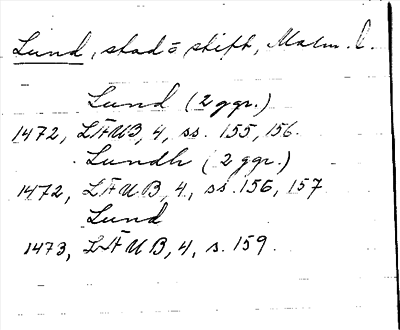 Lund, stad o stift, Malm. l.
Lund (2 ggr.)
1472, LÄUB, 4, ss. 155, 156.
Lundh (2 ggr.)
1472, LÄUB, 4, ss. 156, 157
Lund
1473, LÄUB, 4, s. 159.